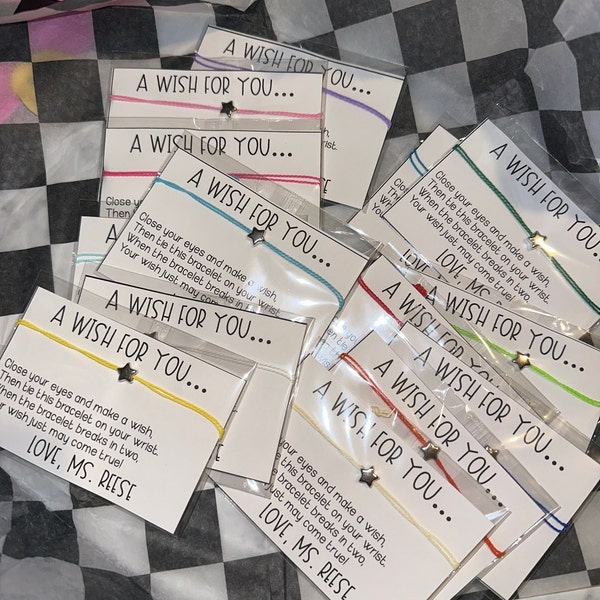 A WISH FOR YOU...
A WISH FOR YOU...
A WISH FOR YOU...
Close your
Then tie
A WISH FOR YOU...
Close your eyes and make a wish,
Then tie this bracelet on your wrist.
When the bracelet breaks in two,
Your wish just may come
A WISH FOR YOU...
A WISH FOR YOU...
Close your eyes and make a wish,
Then tie this bracelet on your wrist.
When the bracelet breaks in two,
Your wish just may come true!
LOVE, MS. REESE
A WISH FOR YOU...
Close your eyes and make a wish,
Then tie this bracelet on your wrist.
When the bracelet breaks in two,
Your wish just may come true!
LOVE, MS. REESE
A WISH FOR YOU...
A WISH FOR YOU...
A WISH FOR YOU...
A WISH FOR YOU...
A WISH FOR YOU...
eyes and make a wish,
tie this bracelet on your wrist.
the bracelet breaks in two,
just may come true!
LOVE, MS. REESE